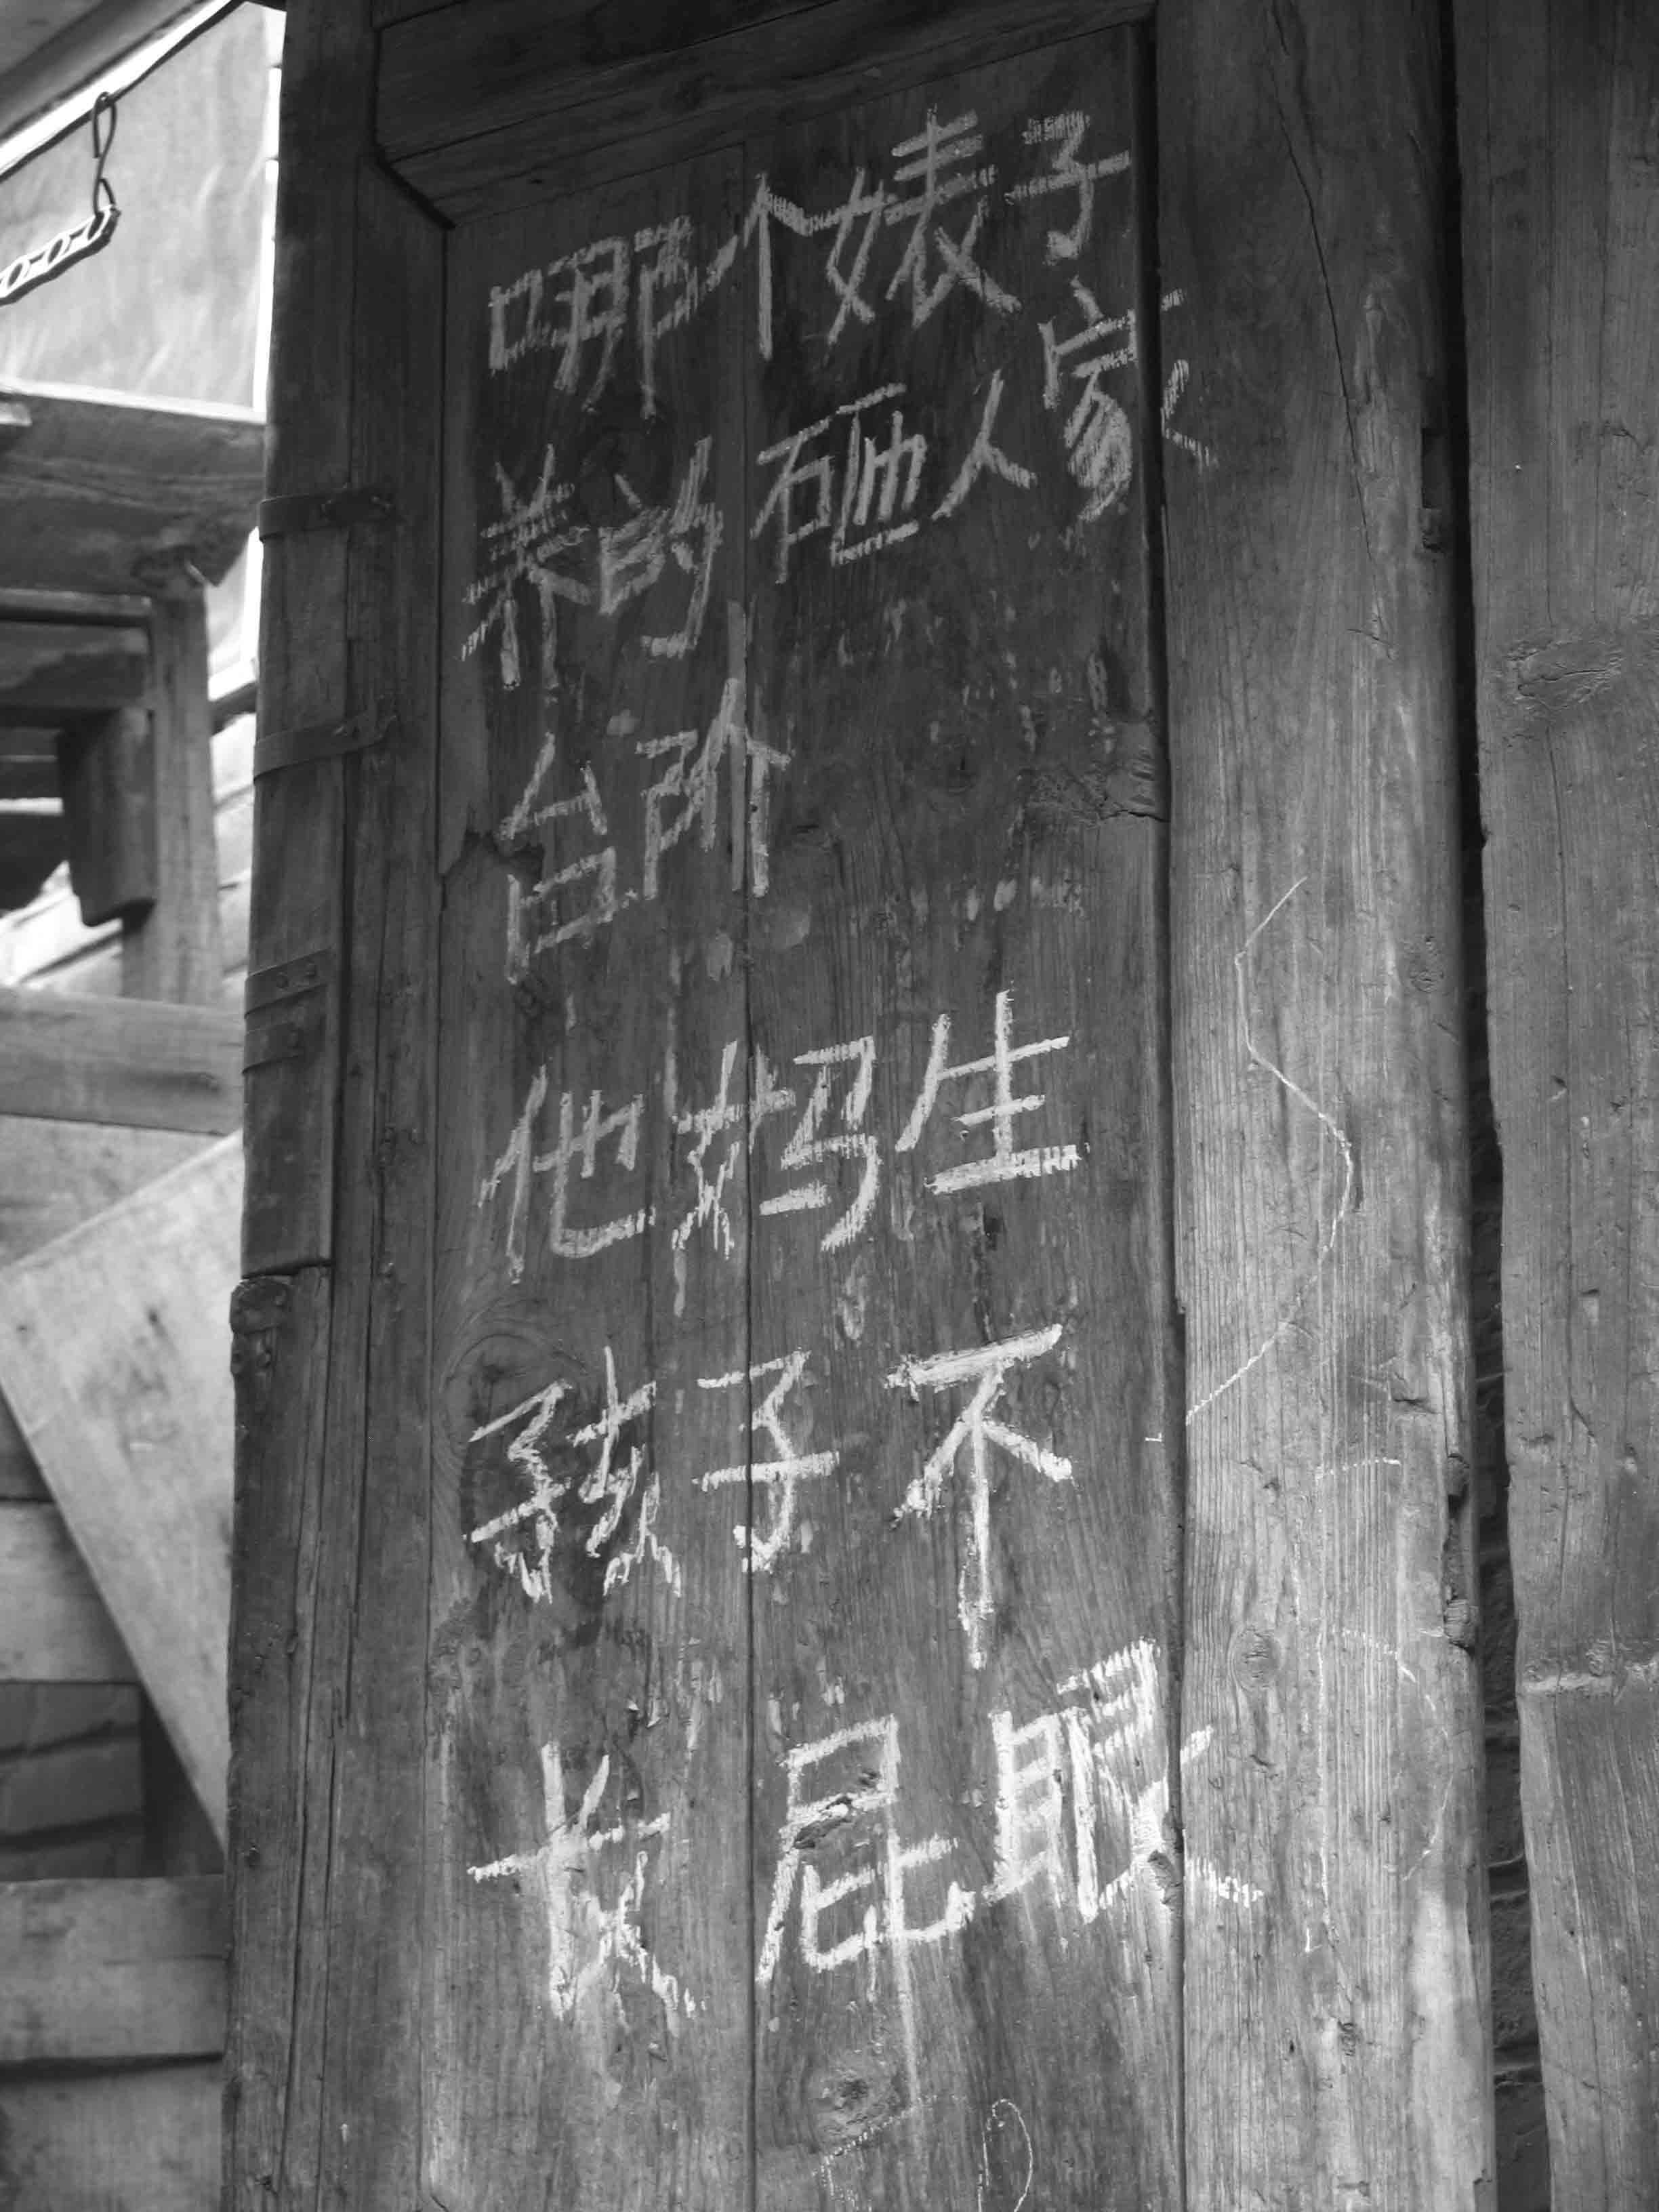 哪个婊子
养的砸人家
台阶
他妈生
孩子不
长屁眼